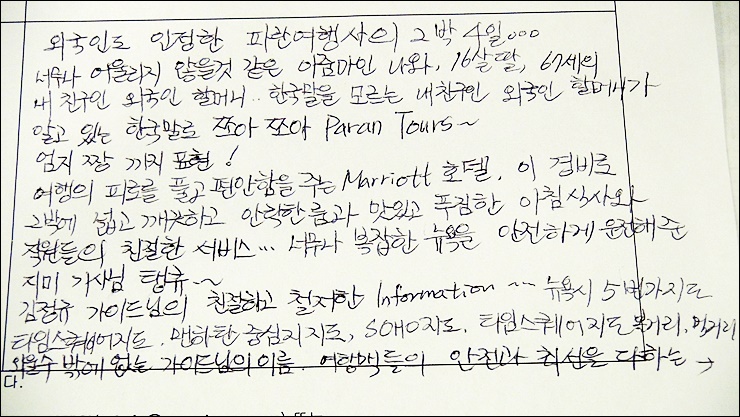 외국인도 인정한 파란여행사의 그박 4일...
너무나 어울리지 않을것 같은 아줌마인 나와, 16살딸, 67세의
내 친구인 외국인 할머니.. 한국말을 모르는 내친구인 외국인 할머니가
알고 있는 한국말로 쪼아 쪼아 Paran Tours~
엄지 짱 까지 표현!
여행의 피로를 풀고 편안함을 주는 Marriott 호텔, 이 경비로
그밖에 넓고 깨끗하고 안락한 룸과 맛있고 푸짐한 아침식사와
직원들의 친절한 서비스... 너무나 복잡한 뉴욕을 안전하게 운전해준
지미 기사님 탱큐~
김정규 가이드님의 친절하고 철저한 Information ... 뉴욕시 5번가지도
타임스퀘어지도, 맨하탄 중심지지도, SOHO지도, 타임스퀘어지도 먹거리,
외울수 밖에 없는 가이드님의 이름. 여행객들의 안전과 최선을 다하는 →
다.